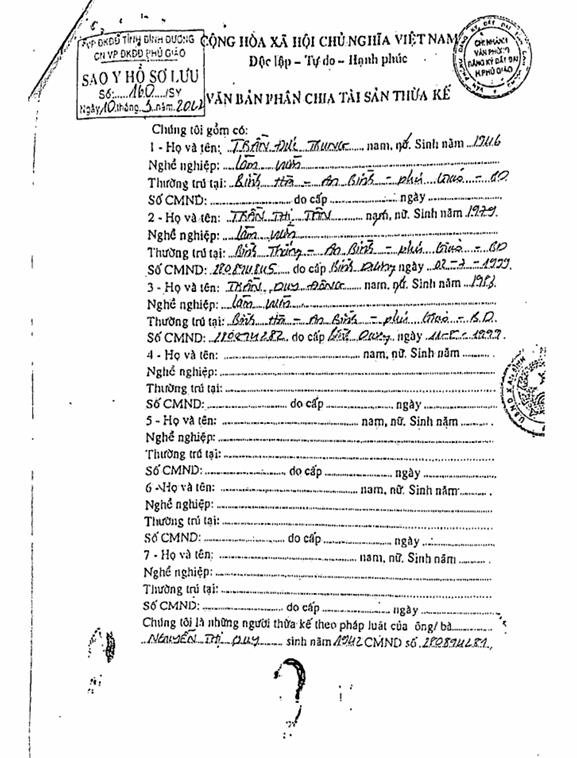 VP ĐKĐĐ TỈNH BÌNH DƯƠNG
CN VP ĐKĐĐ PHÚ GIÁO
SAO Y HỒ SƠ LƯU
Số:.....160...../SY
Ngày 10 tháng 3 năm 20
CỘNG HÒA XÃ HỘI CHỦ NGHĨA VIỆT NAM
Độc lập - Tự do - Hạnh phúc
CHI NHÁNH
VĂN PHÒNG
ĐĂNG KÝ ĐẤT ĐAI
H.PHÚ GIÁO
VĂN BẢN PHÂN CHIA TÀI SẢN THỪA KẾ
Chúng tôi gồm có:
1 - Họ và tên: TRẦN ĐỨC TRUNG nam, nữ. Sinh năm 1946
Nghề nghiệp: Làm vườn
Thường trú tại: Bình Hòa - An Bình - phú Giáo - BD
Số CMND: do cấp ngày
2 - Họ và tên: TRẦN THỊ TÂN nam, nữ. Sinh năm 1979
Nghề nghiệp: Làm vườn
Thường trú tại: Bình Thắng - An Bình - phú Giáo - BD
Số CMND: do cấp Bình Dương ngày 02-7-1999
3 - Họ và tên: TRẦN DUY ĐÔNG nam, nữ. Sinh năm
Nghề nghiệp: Làm vườn
Thường trú tại: Bình Hòa - An Bình - phú Giáo - B.D.
Số CMND: do cấp Bình Dương ngày
4 - Họ và tên: nam, nữ. Sinh năm
Nghề nghiệp:
Thường trú tại:
Số CMND: do cấp ngày
5 - Họ và tên: nam, nữ. Sinh năm
Nghề nghiệp:
Thường trú tại:
Số CMND: do cấp ngày
6 - Họ và tên: nam, nữ. Sinh năm
Nghề nghiệp:
Thường trú tại:
Số CMND: do cấp ngày
7 - Họ và tên: nam, nữ. Sinh năm
Nghề nghiệp:
Thường trú tại:
Số CMND: do cấp ngày
Chúng tôi là những người thừa kế theo pháp luật của ông/ bà
NGUYỄN THỊ DUY sinh năm 1942 CMND số